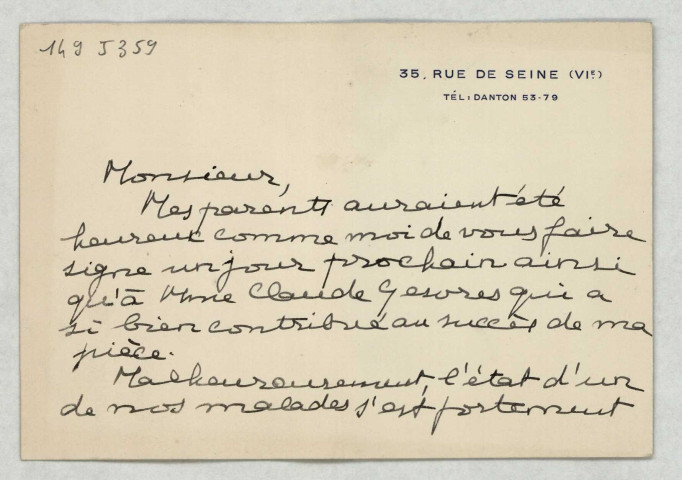 149 J 359
35, RUE DE SEINE (VIE)
TÉL: DANTON 53-79
Monsieur,
Mes parents auraient été
heureux comme moi de vous faire
signe un jour prochain ainsi
qu'à Mme Claude Gesvres qui a
si bien contribué au succès de ma
pièce.
Malheureusement, l'état d'un
de nos malades s'est fortement